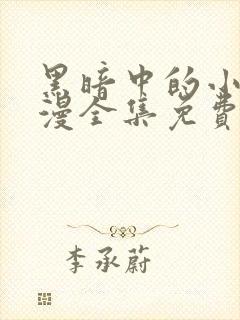 黑暗中的小
漫全集免费
李承蔚